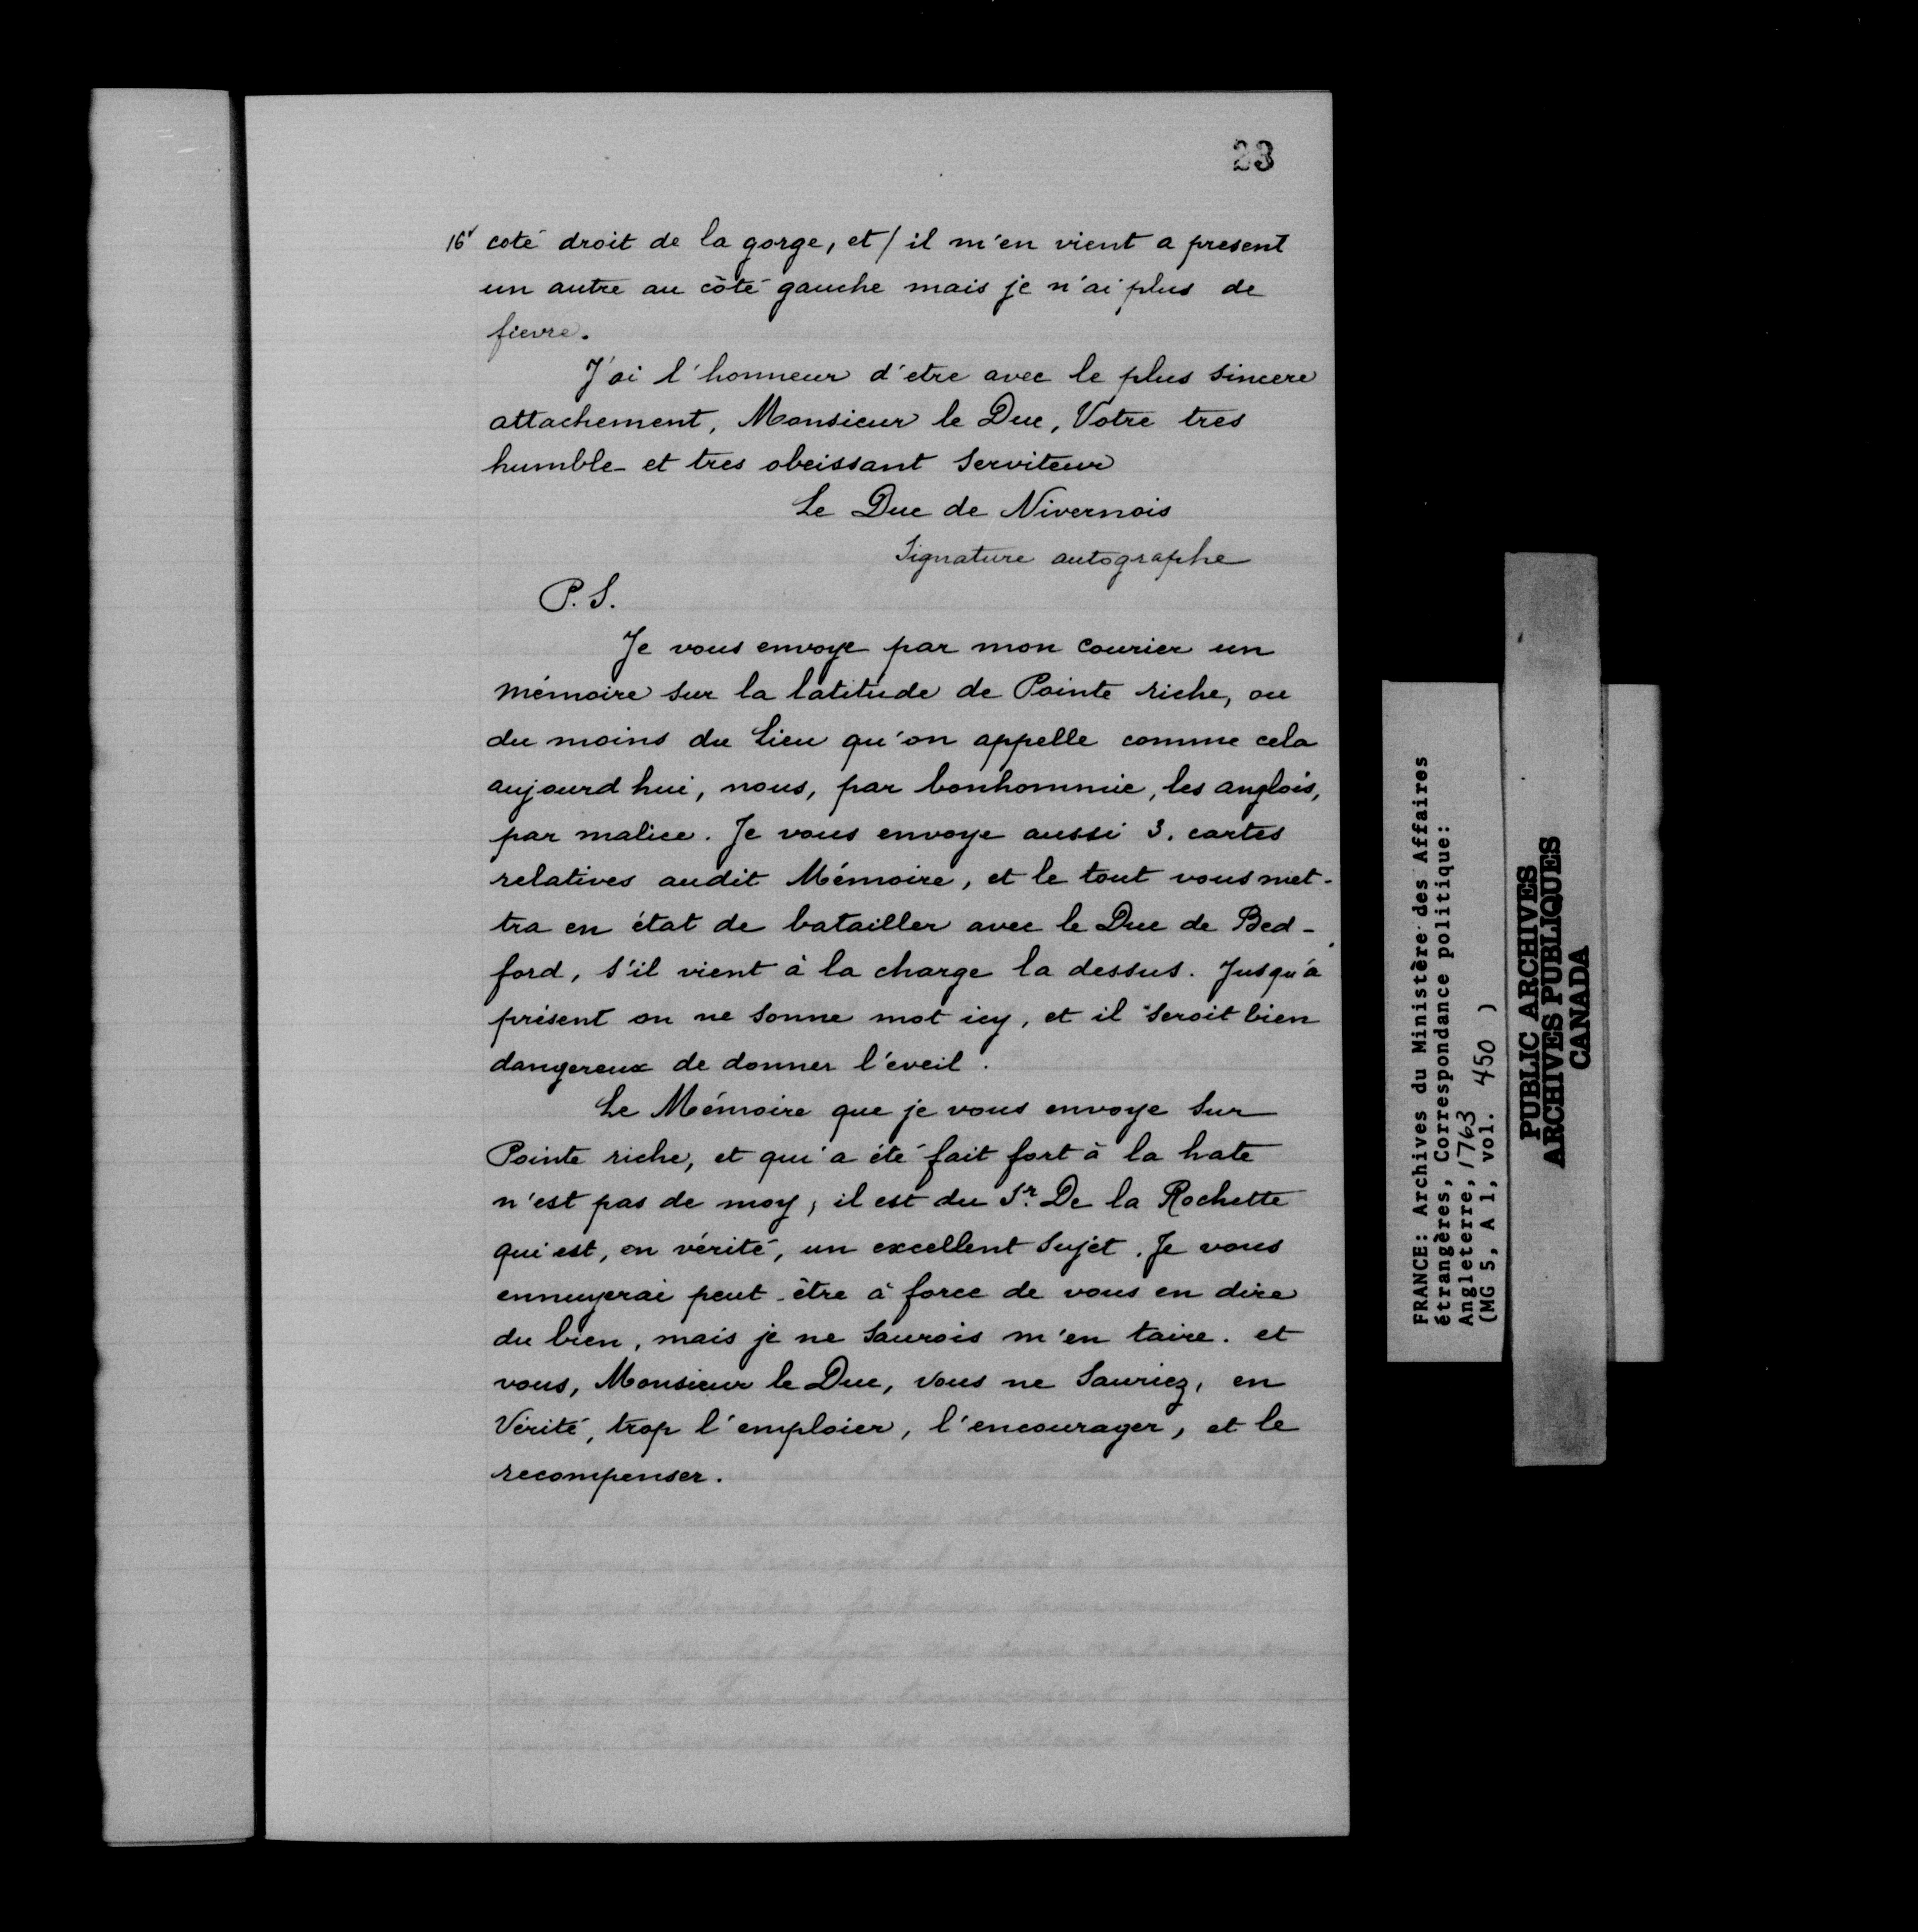 23
16v coté droit de la gorge, et / il m'en vient a present
un autre au côté gauche mais je n'ai plus de
fievre.
J'ai l'honneur d'etre avec le plus sincere
attachement, Monsieur le Duc, Votre tres
humble et tres obeissant Serviteur
Le Duc de Nivernois
Signature autographe
P.S.
Je vous envoye par mon Courier un
mémoire sur la latitude de Pointe riche, ou
du moins du Lieu qu'on appelle comme cela
aujourd hui, nous, par bonhommie, les anglois,
par malice. Je vous envoye aussi 3. cartes
relatives audit Mémoire, et le tout vous met-
tra en état de batailler avec le Duc de Bed-
ford, s'il vient à la charge la dessus. Jusqu'à
présent on ne sonne mot icy, et il seroit bien
dangereux de donner l'éveil.
Le Mémoire que je vous envoye sur
Pointe riche, et qui a été fait fort à la hate
n'est pas de moy, il est du Sr. De la Rochette
qui est, en vérité, un excellent sujet. Je vous
ennuyerai peut-être à force de vous en dire
du bien, mais je ne saurois m'en taire. et
vous, Monsieur le Duc, vous ne sauriez, en
Vérité, trop l'emploier, l'encourager, et le
recompenser.
FRANCE: Archives du Ministère des Affaires
étrangères, Correspondance politique:
Angleterre, 1763
(MG 5, A 1, vol. 450 )
PUBLIC ARCHIVES
ARCHIVES PUBLIQUES
CANADA